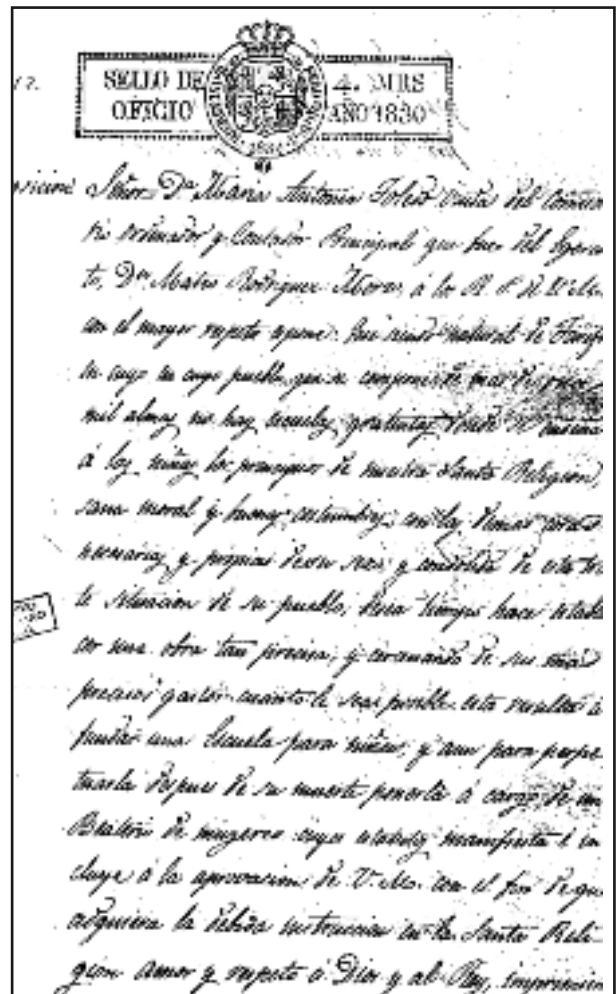 12.
SELLO DE OFICIO
4. MRS
AÑO 1830
Señor: Dª Maria Antonia Toledo Viuda del
ordenador y Contador Principal que fue del
to, Dn Mateo Rodriguez á los R. P. de V. M.
con el mayor respeto espone: Que siendo natural de
en cuyo en cuyo pueblo, que se compone de mas de
mil almas no hay escuelas gratuitas donde se
á las niñas los principios de nuestra Santa Religion,
sana moral y buenas costumbres, con las demas
necesarias y propias de su sexo, y condolida de
te situacion de su pueblo, desea tiempo hace
cer una obra tan precisa, y de sus mas
precisos gastos cuanto le sea posible esta resuelta á
fundar una Escuela para niñas, y aun para perpe
tuarla despues de su muerte ponerla á cargo de un
Beaterio de mugeres cuyos manifiesta é in
cluye á la aprovacion de V. M. con el fin de que
adquiera la debida instruccion en la Santa Reli-
gion amor y respeto á Dios y al Rey,